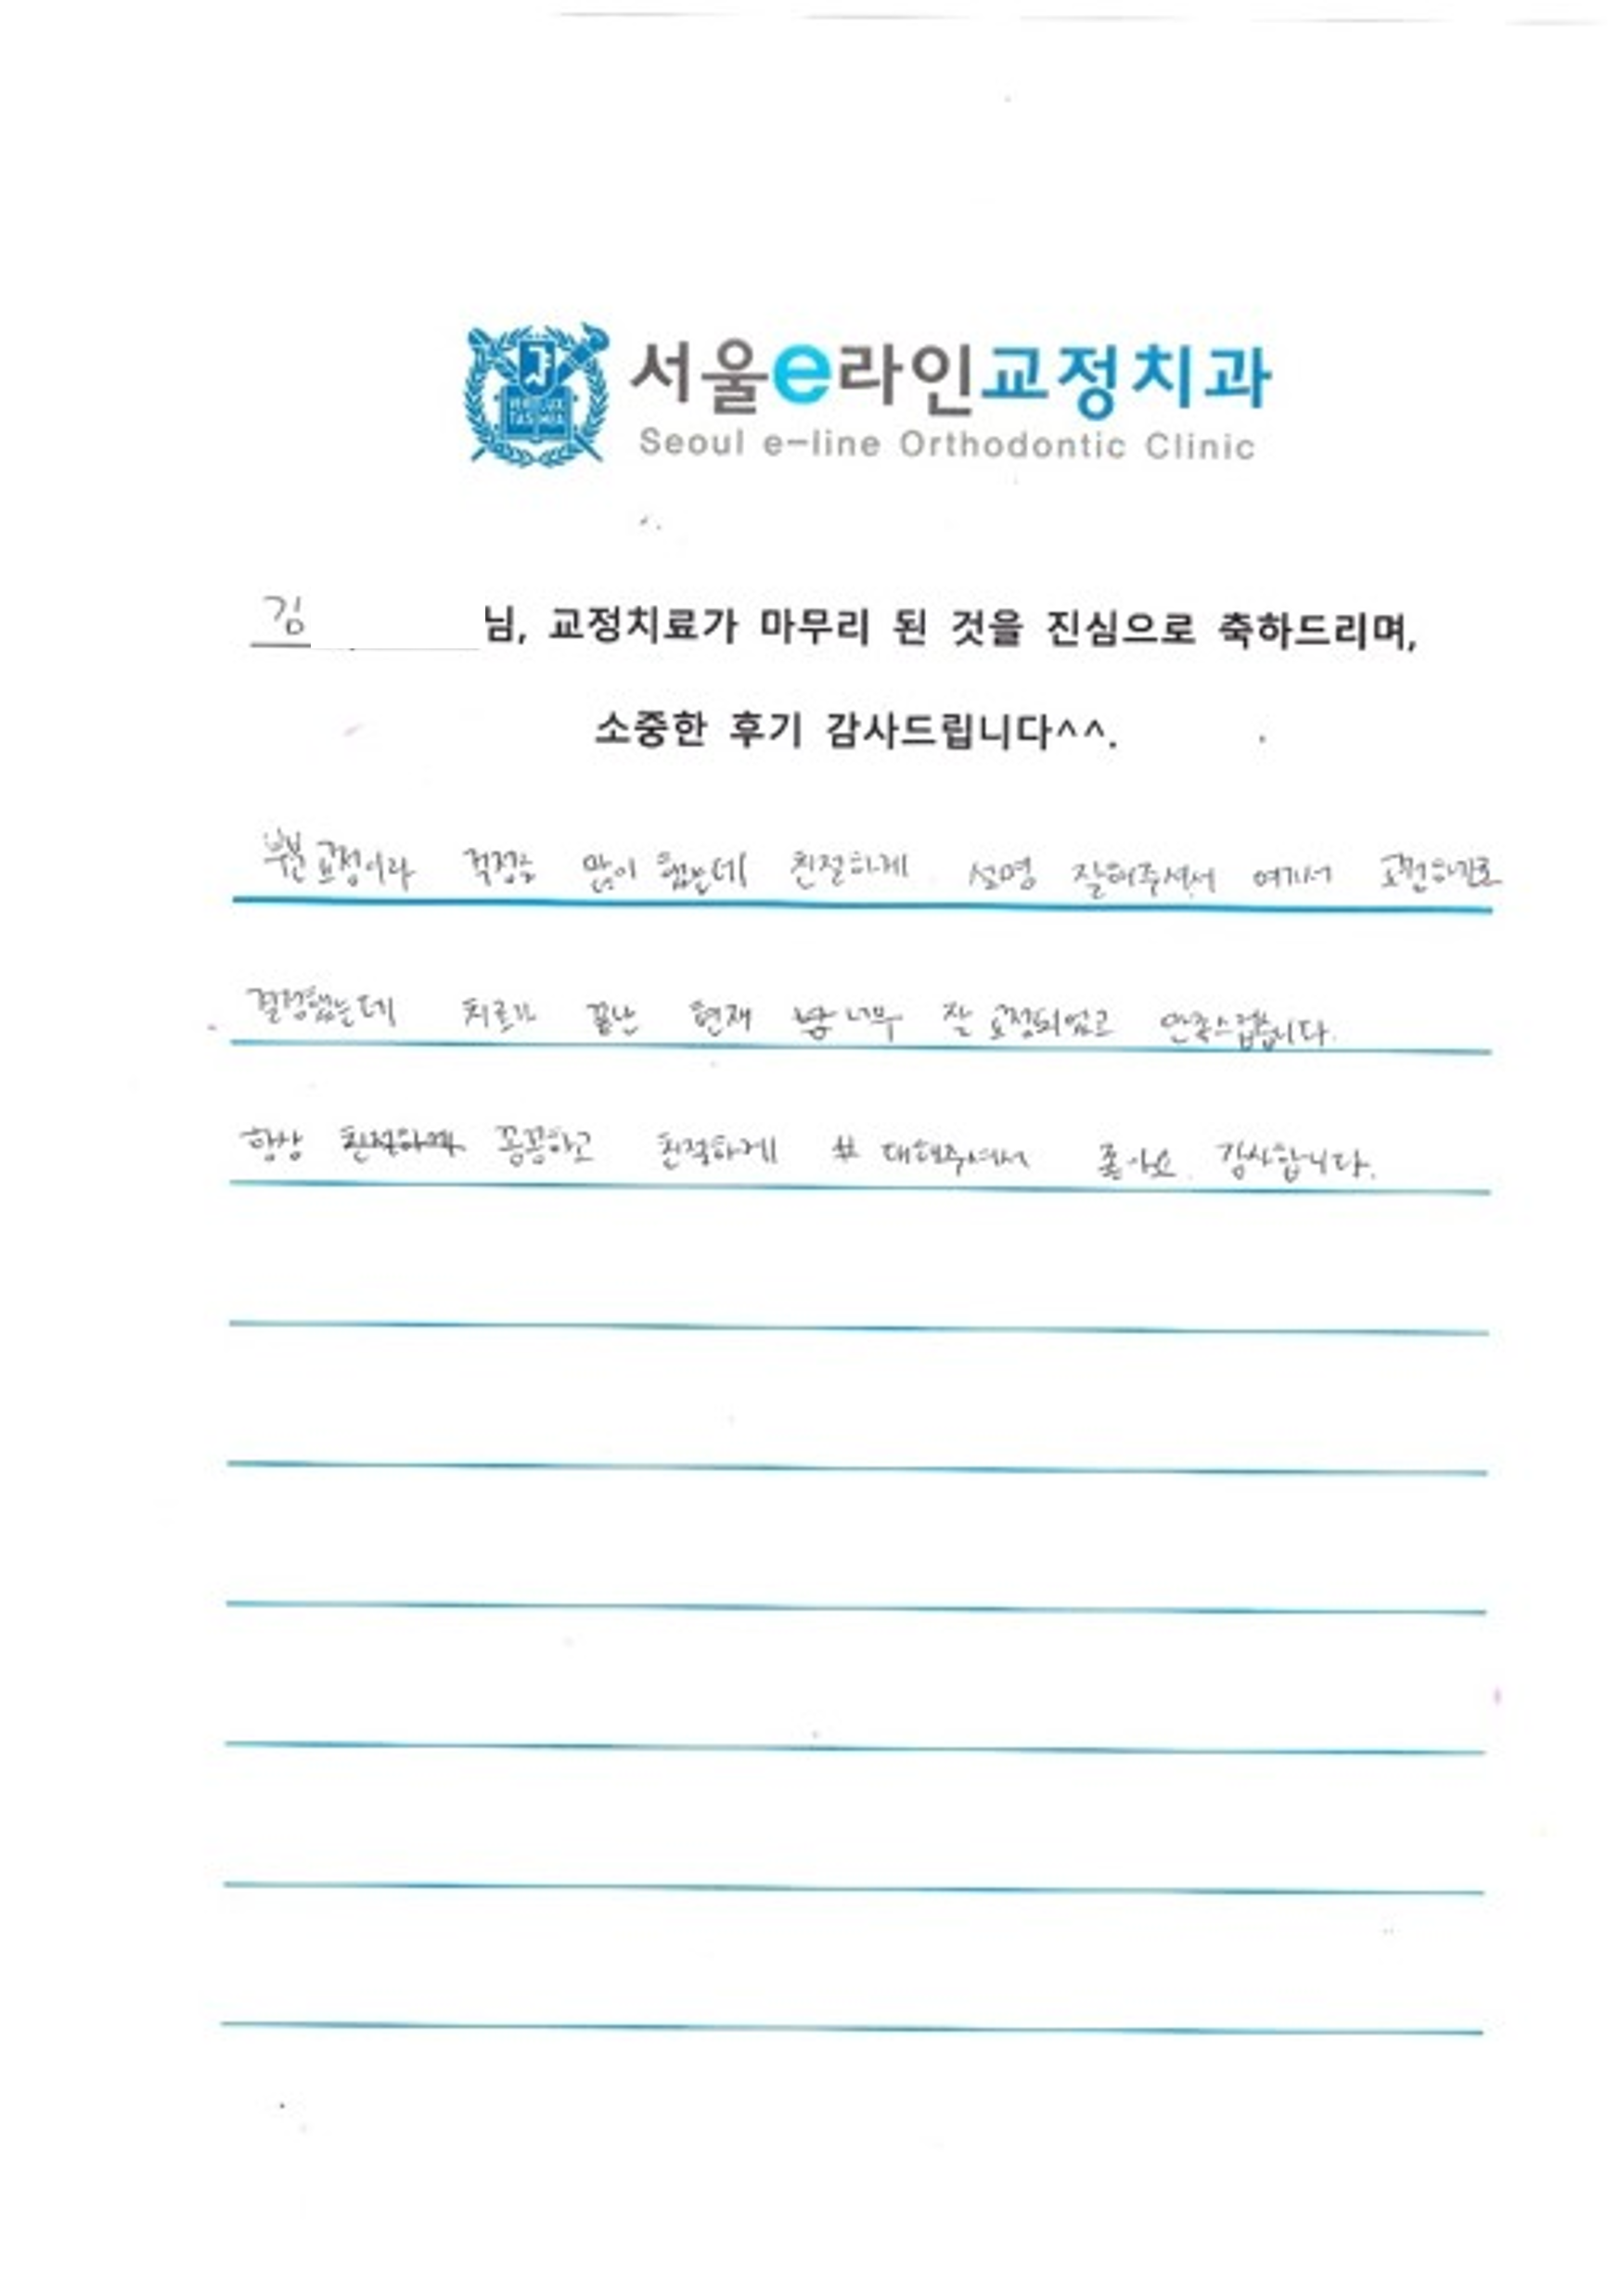 서울e라인교정치과
Seoul e-line Orthodontic Clinic
김 님, 교정치료가 마무리 된 것을 진심으로 축하드리며,
소중한 후기 감사드립니다^^.
부분교정이라 걱정을 많이 했는데 친절하게 설명 잘해주셔서 여기서 교정하기로
결정했는데 치료가 끝난 현재 너무 잘 교정되었고 만족스럽습니다.
항상 꼼꼼하고 친절하게 대해주셔서 좋아요. 감사합니다.